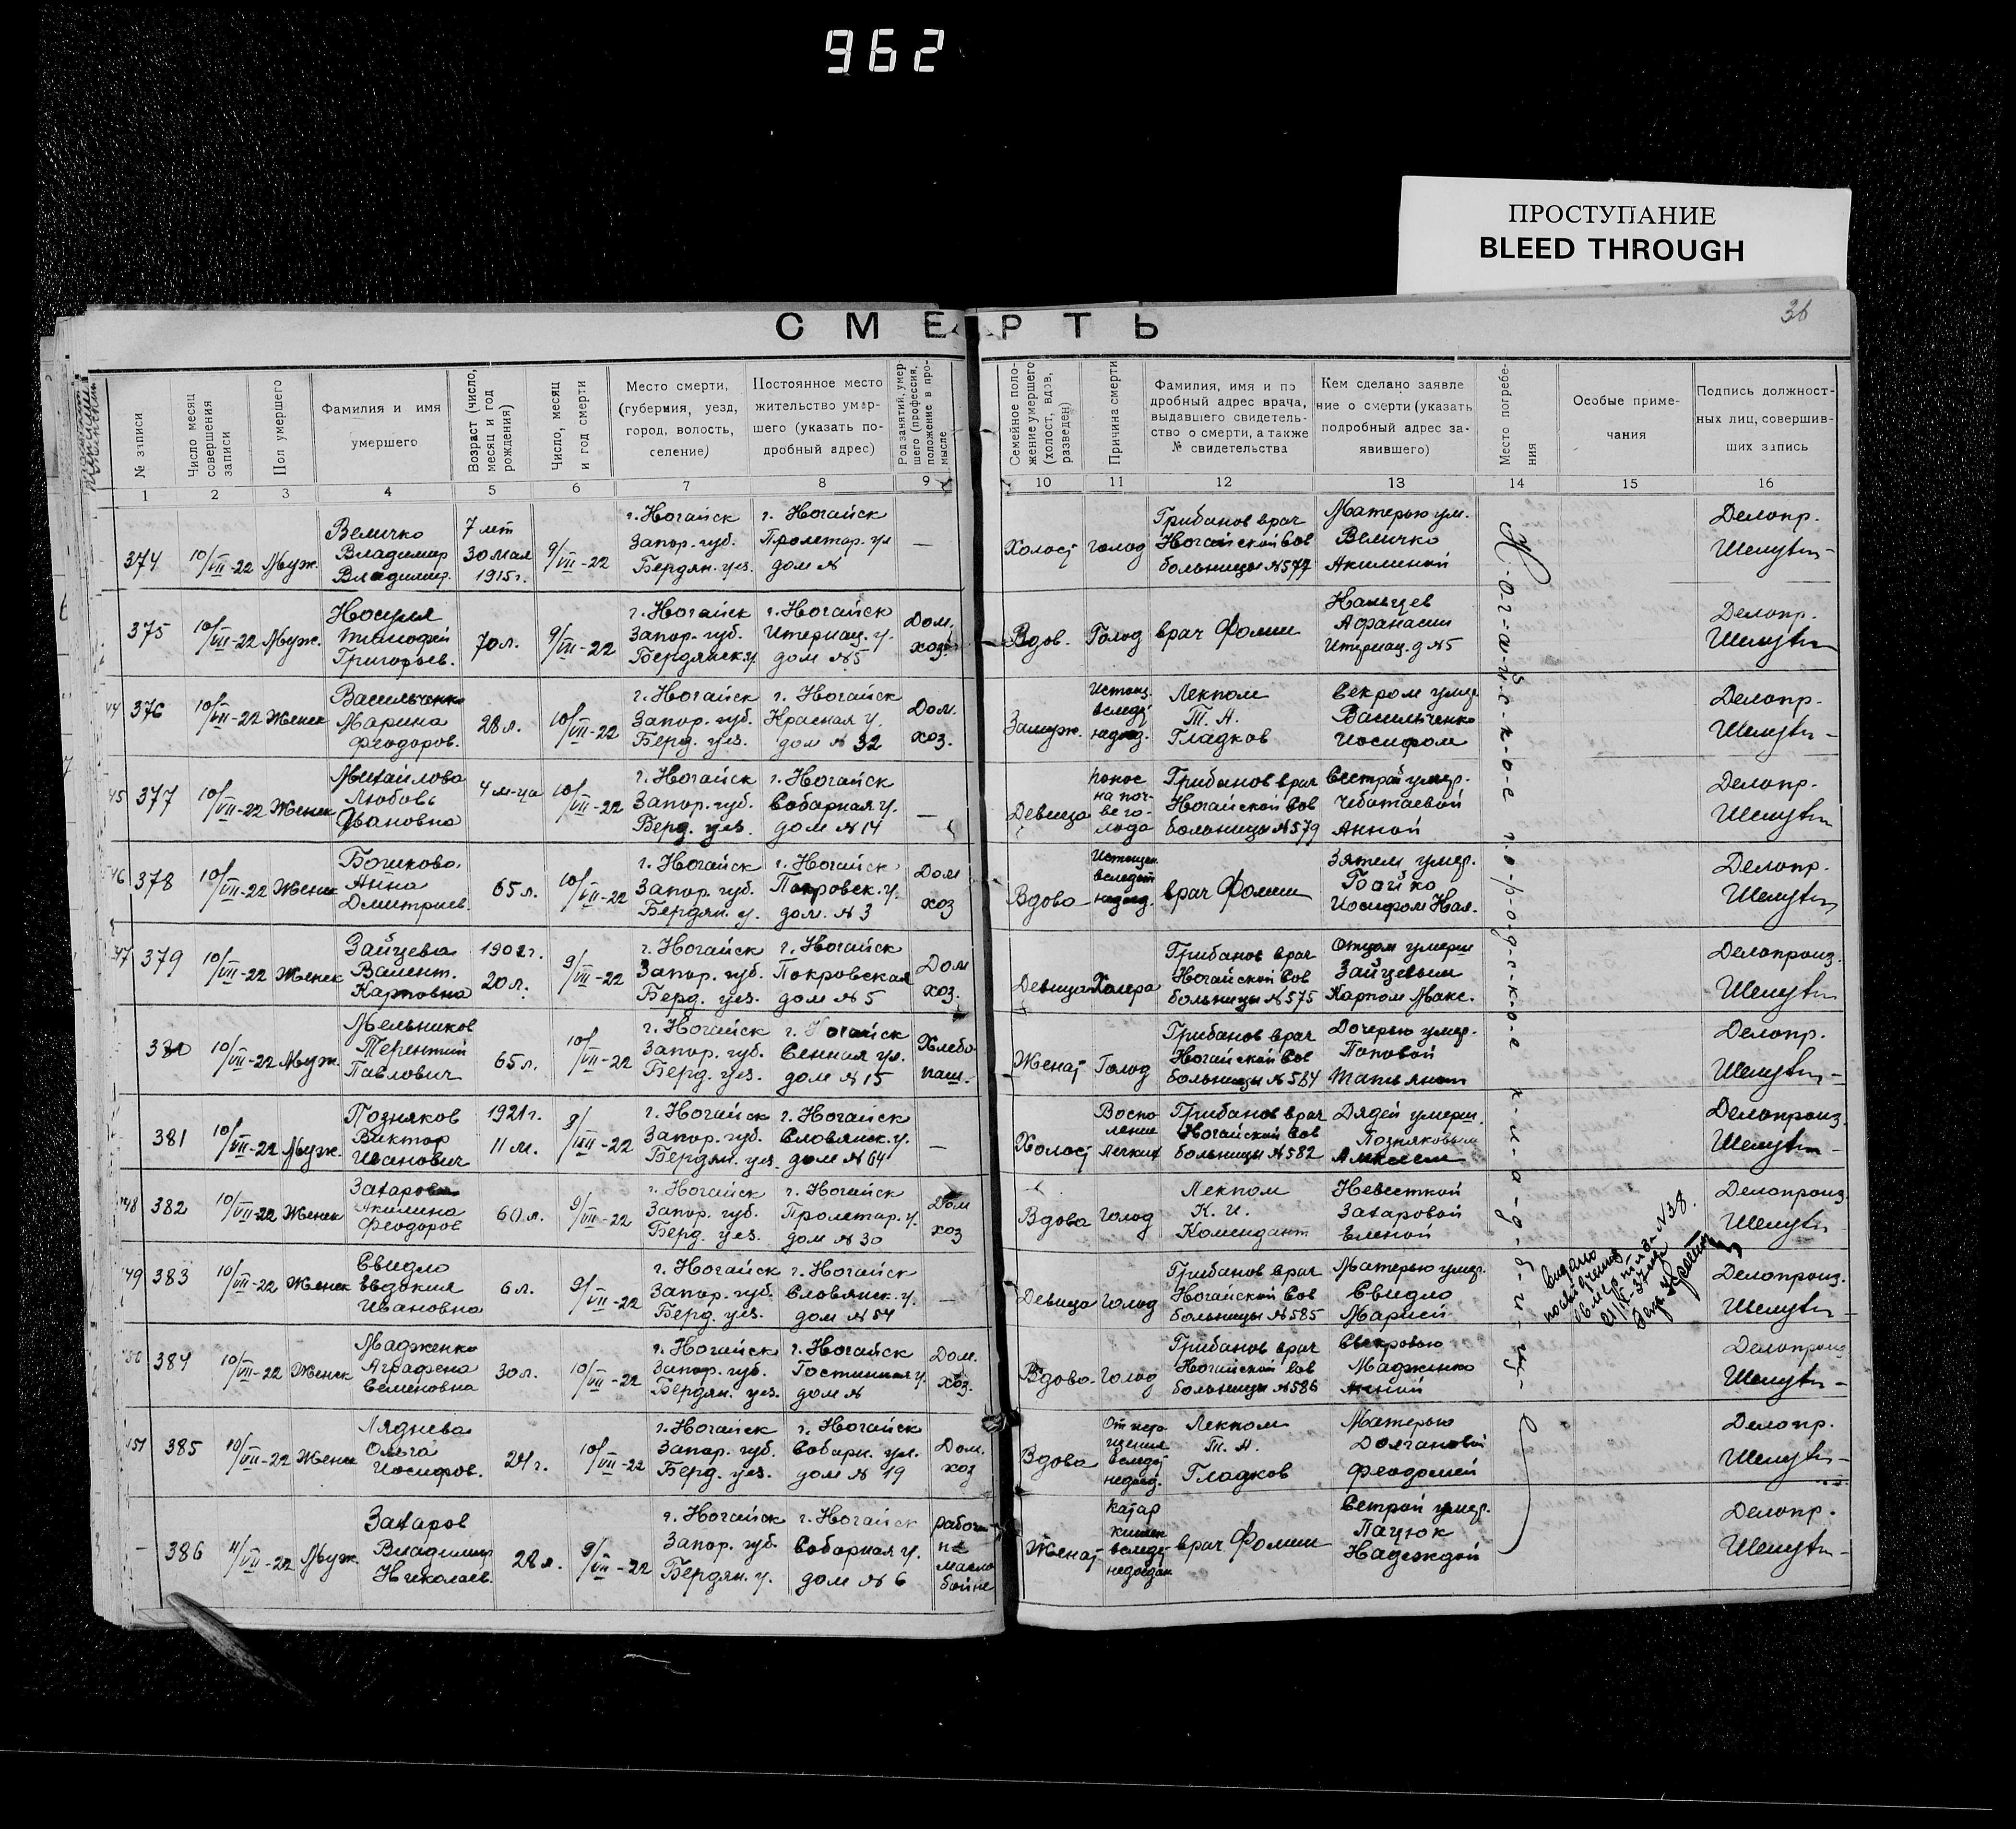 962
ПРОСТУПАНИЕ
BLEED THROUGH
36
СМЕРТЬ
№ записи
Число месяц совершения записи
Пол умершего
Фамилия и имя умершего
Возраст (число, месяц и год рождения)
Число, месяц и год смерти
Место смерти, (губерния, уезд, город, волость, селение)
Постоянное место жительство умершего (указать подробный адрес)
Род занятий, умершего (профессия, положение в промысле
Семейное положение умершего (холост, вдов, разведен)
Причина смерти
Фамилия, имя и подробный адрес врача, выдавшего свидетельство о смерти, а также № свидетельства
Кем сделано заявление о смерти (указать подробный адрес заявившего)
Место погребения
Особые примечания
Подпись должностных лиц, совершивших запись
1 2 3 4 5 6 7 8 9 10 11 12 13 14 15 16
374 10/VII-22 Муж. Величко Владимир Владимир. 7 лет 30 мая 1915г. 9/VII-22 г. Ногайск Запор. губ. Бердян. уез. г. Ногайск Пролетар. ул дом № — Холост голод Грибанов врач Ногайской Сов больницы №577 Матерью ум. Величко Акилиной Делопр.
375 10/VII-22 Муж. Носуля Тимофей Григорьев. 70 л. 9/VII-22 г. Ногайск Запор. губ. Бердянск. у. г. Ногайск Интернац. у. дом №5 Дом. хоз. Вдов. Голод врач Фомин Нальцев Афанасий Интернац. д №5 Делопр.
376 10/VII-22 Женск Васильченко Марина Феодоров. 28 л. 10/VII-22 г. Ногайск Запор. губ. Берд. уез. г. Ногайск Красная у. дом № 32 Дом. хоз. Замуж. Истощ. вслед. недоед. Лекпом Т. А. Гладков Свекром умер. Васильченко Иосифом Делопр.
377 10/VII-22 Женск Михайлова Любовь Ивановна 4 м-ца 10/VII-22 г. Ногайск Запор. губ. Берд. уез. г. Ногайск Соборная у. дом №14 — Девица понос на почве голода Грибанов врач Ногайской Сов больницы №579 Сестрой умер. Чеботаевой Анной Делопр.
378 10/VII-22 Женск Бошкова Анна Дмитриев. 65 л. 10/VII-22 г. Ногайск Запор. губ. Бердян. у. г. Ногайск Покровск. у. дом. № 3 Дом хоз Вдова Истощен. вследст недоед. врач Фомин Зятем умер. Бойко Иосифом Делопр.
379 10/VII-22 Женск Зайцева Валент. Карповна 1902г. 20 л. 9/VII-22 г. Ногайск Запор. губ. Берд. уез. г. Ногайск Покровская дом №5 Дом хоз. Девица Холера Грибанов врач Ногайской Сов больницы №575 Отцом умерш Зайцевым Карпом Макс. Делопроиз.
380 10/VII-22 Муж. Мельников Терентий Павлович 65 л. 10/VII-22 г. Ногайск Запор. губ. Берд. уез. г. Ногайск Сенная ул. дом №15 Хлебопаш. Женат Голод Грибанов врач Ногайской Сов больницы №584 Дочерью умер. Поповой Татьяной Делопр.
381 10/VII-22 Муж. Позняков Виктор Иванович 1921г. 11 м. 8/VII-22 г. Ногайск Запор. губ. Бердян. уез. г. Ногайск Словянск. у. дом №64 — Холост Воспаление легких Грибанов врач Ногайской Сов больницы №582 Дядей умерш. Позняковым Делопроиз.
382 10/VII-22 Женск Захарова Акилина Феодоров 60 л. 9/VII-22 г. Ногайск Запор. губ. Берд. уез. г. Ногайск Пролетар. у. дом №30 Дом хоз Вдова голод Лекпом К. И. Комендант Невесткой Захаровой Еленой Делопроиз.
383 10/VII-22 Женск Свидло Евдокия Ивановна 6 л. 9/VII-22 г. Ногайск Запор. губ. Берд. уез. г. Ногайск Словянск. у. дом №54 — Девица голод Грибанов врач Ногайской Сов больницы №585 Матерью умер. Свидло Марией Делопроиз.
384 10/VII-22 Женск Мадженко Аграфена Семеновна 30 л. 10/VII-22 г. Ногайск Запор. губ. Бердян. уез. г. Ногайск Гостинная у дом № Дом. хоз. Вдова голод Грибанов врач Ногайской Сов больницы №586 Свекровью Мадженко Анной Делопроиз
385 10/VII-22 Женск Ляднева Ольга Иосифов. 24 г. 10/VII-22 г. Ногайск Запор. губ. Берд. уез. г. Ногайск Соборн. ул. дом № 19 Дом. хоз Вдова вслед. недоед. Лекпом Т. А. Гладков Матерью Долгановой Феодосией Делопр.
386 11/VII-22 Муж. Захаров Владимир Николаев. 28 л. 9/VII-22 г. Ногайск Запор. губ. Бердян. у. г. Ногайск Соборная у. дом №6 рабоч на маслобойне Женат Катар кишек вслед. недоедан врач Фомин Сестрой умер. Пацюк Надеждой Делопр.
Н-о-г-а-й-с-к-о-е г-о-р-о-д-с-к-о-е к-л-а-д-б-и-щ-